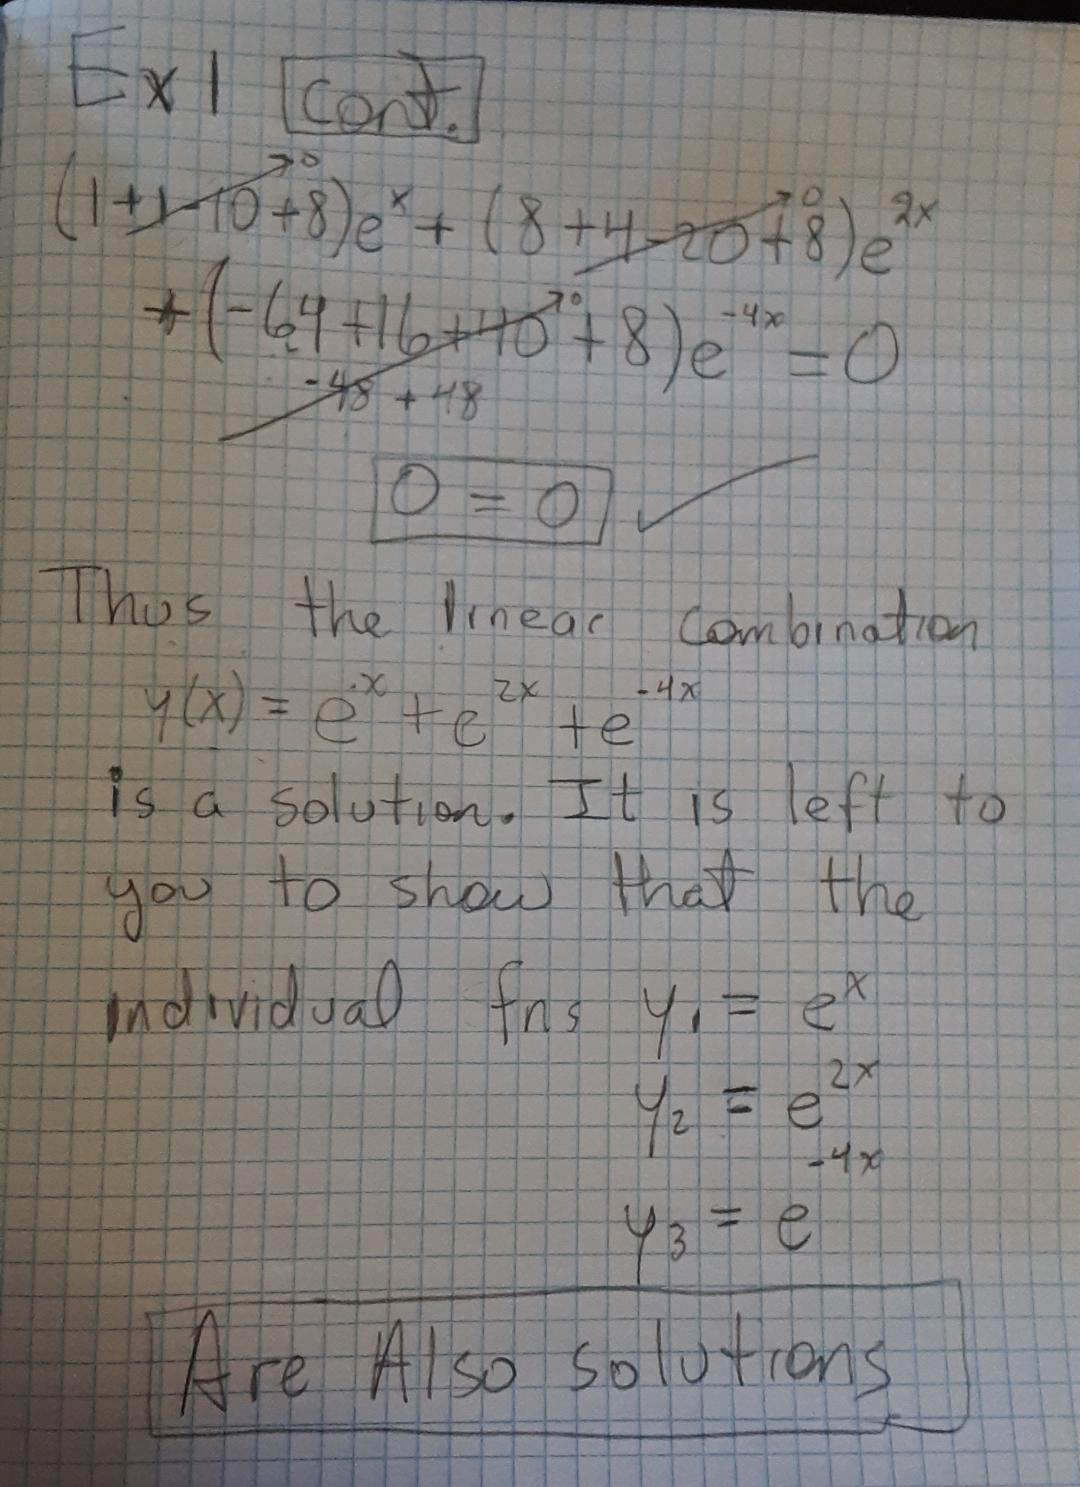 Ex 1 Cont.
(1+1-10+8)e^x + (8+4-20+8)e^2x
0 0
+ (-64+16+40+8)e^-4x = 0
0
-48 + 48
0 = 0 ✓
Thus the linear combination
y(x) = e^x + e^2x + e^-4x
is a solution. It is left to
you to show that the
individual fns y₁ = e^x
y₂ = e^2x
y₃ = e^-4x
Are Also solutions